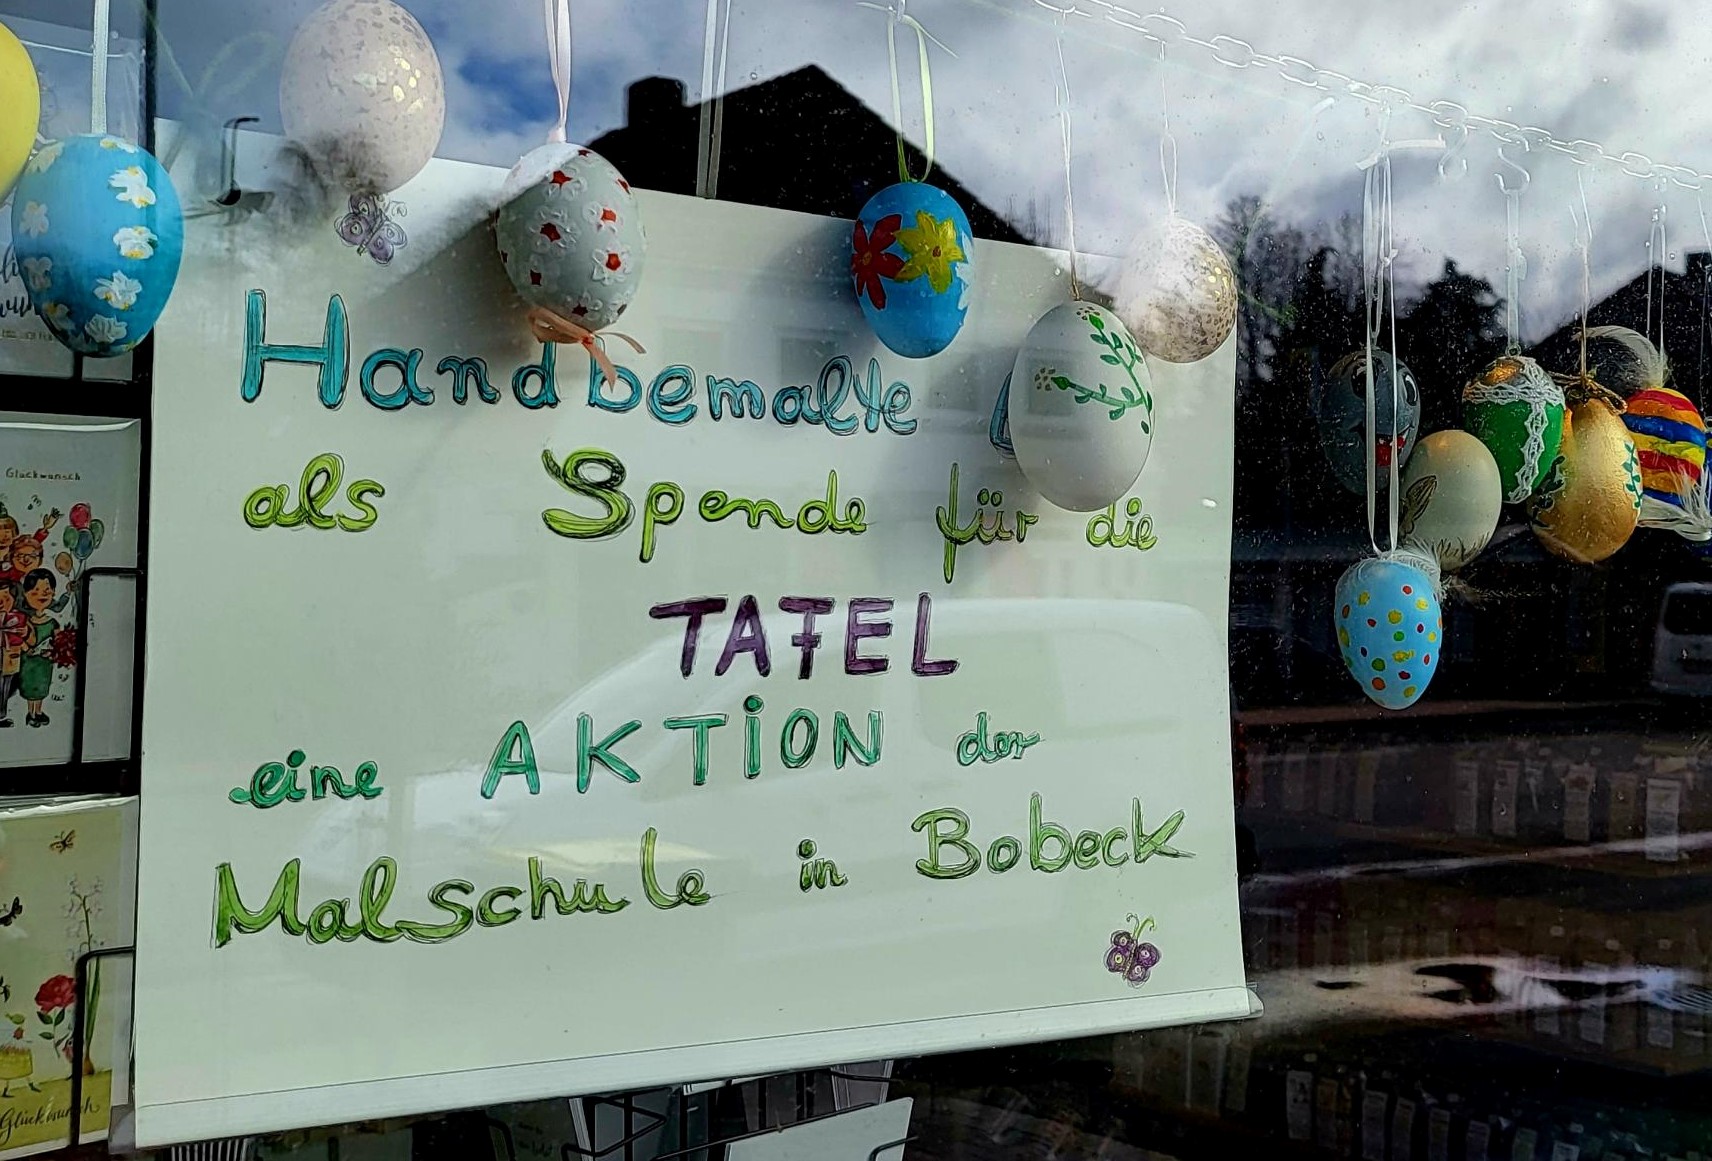 Handbemalte
als Spende für die
TAFEL
eine AKTiON der
Malschule in Bobeck
Glückwunsch
Glückwunsch